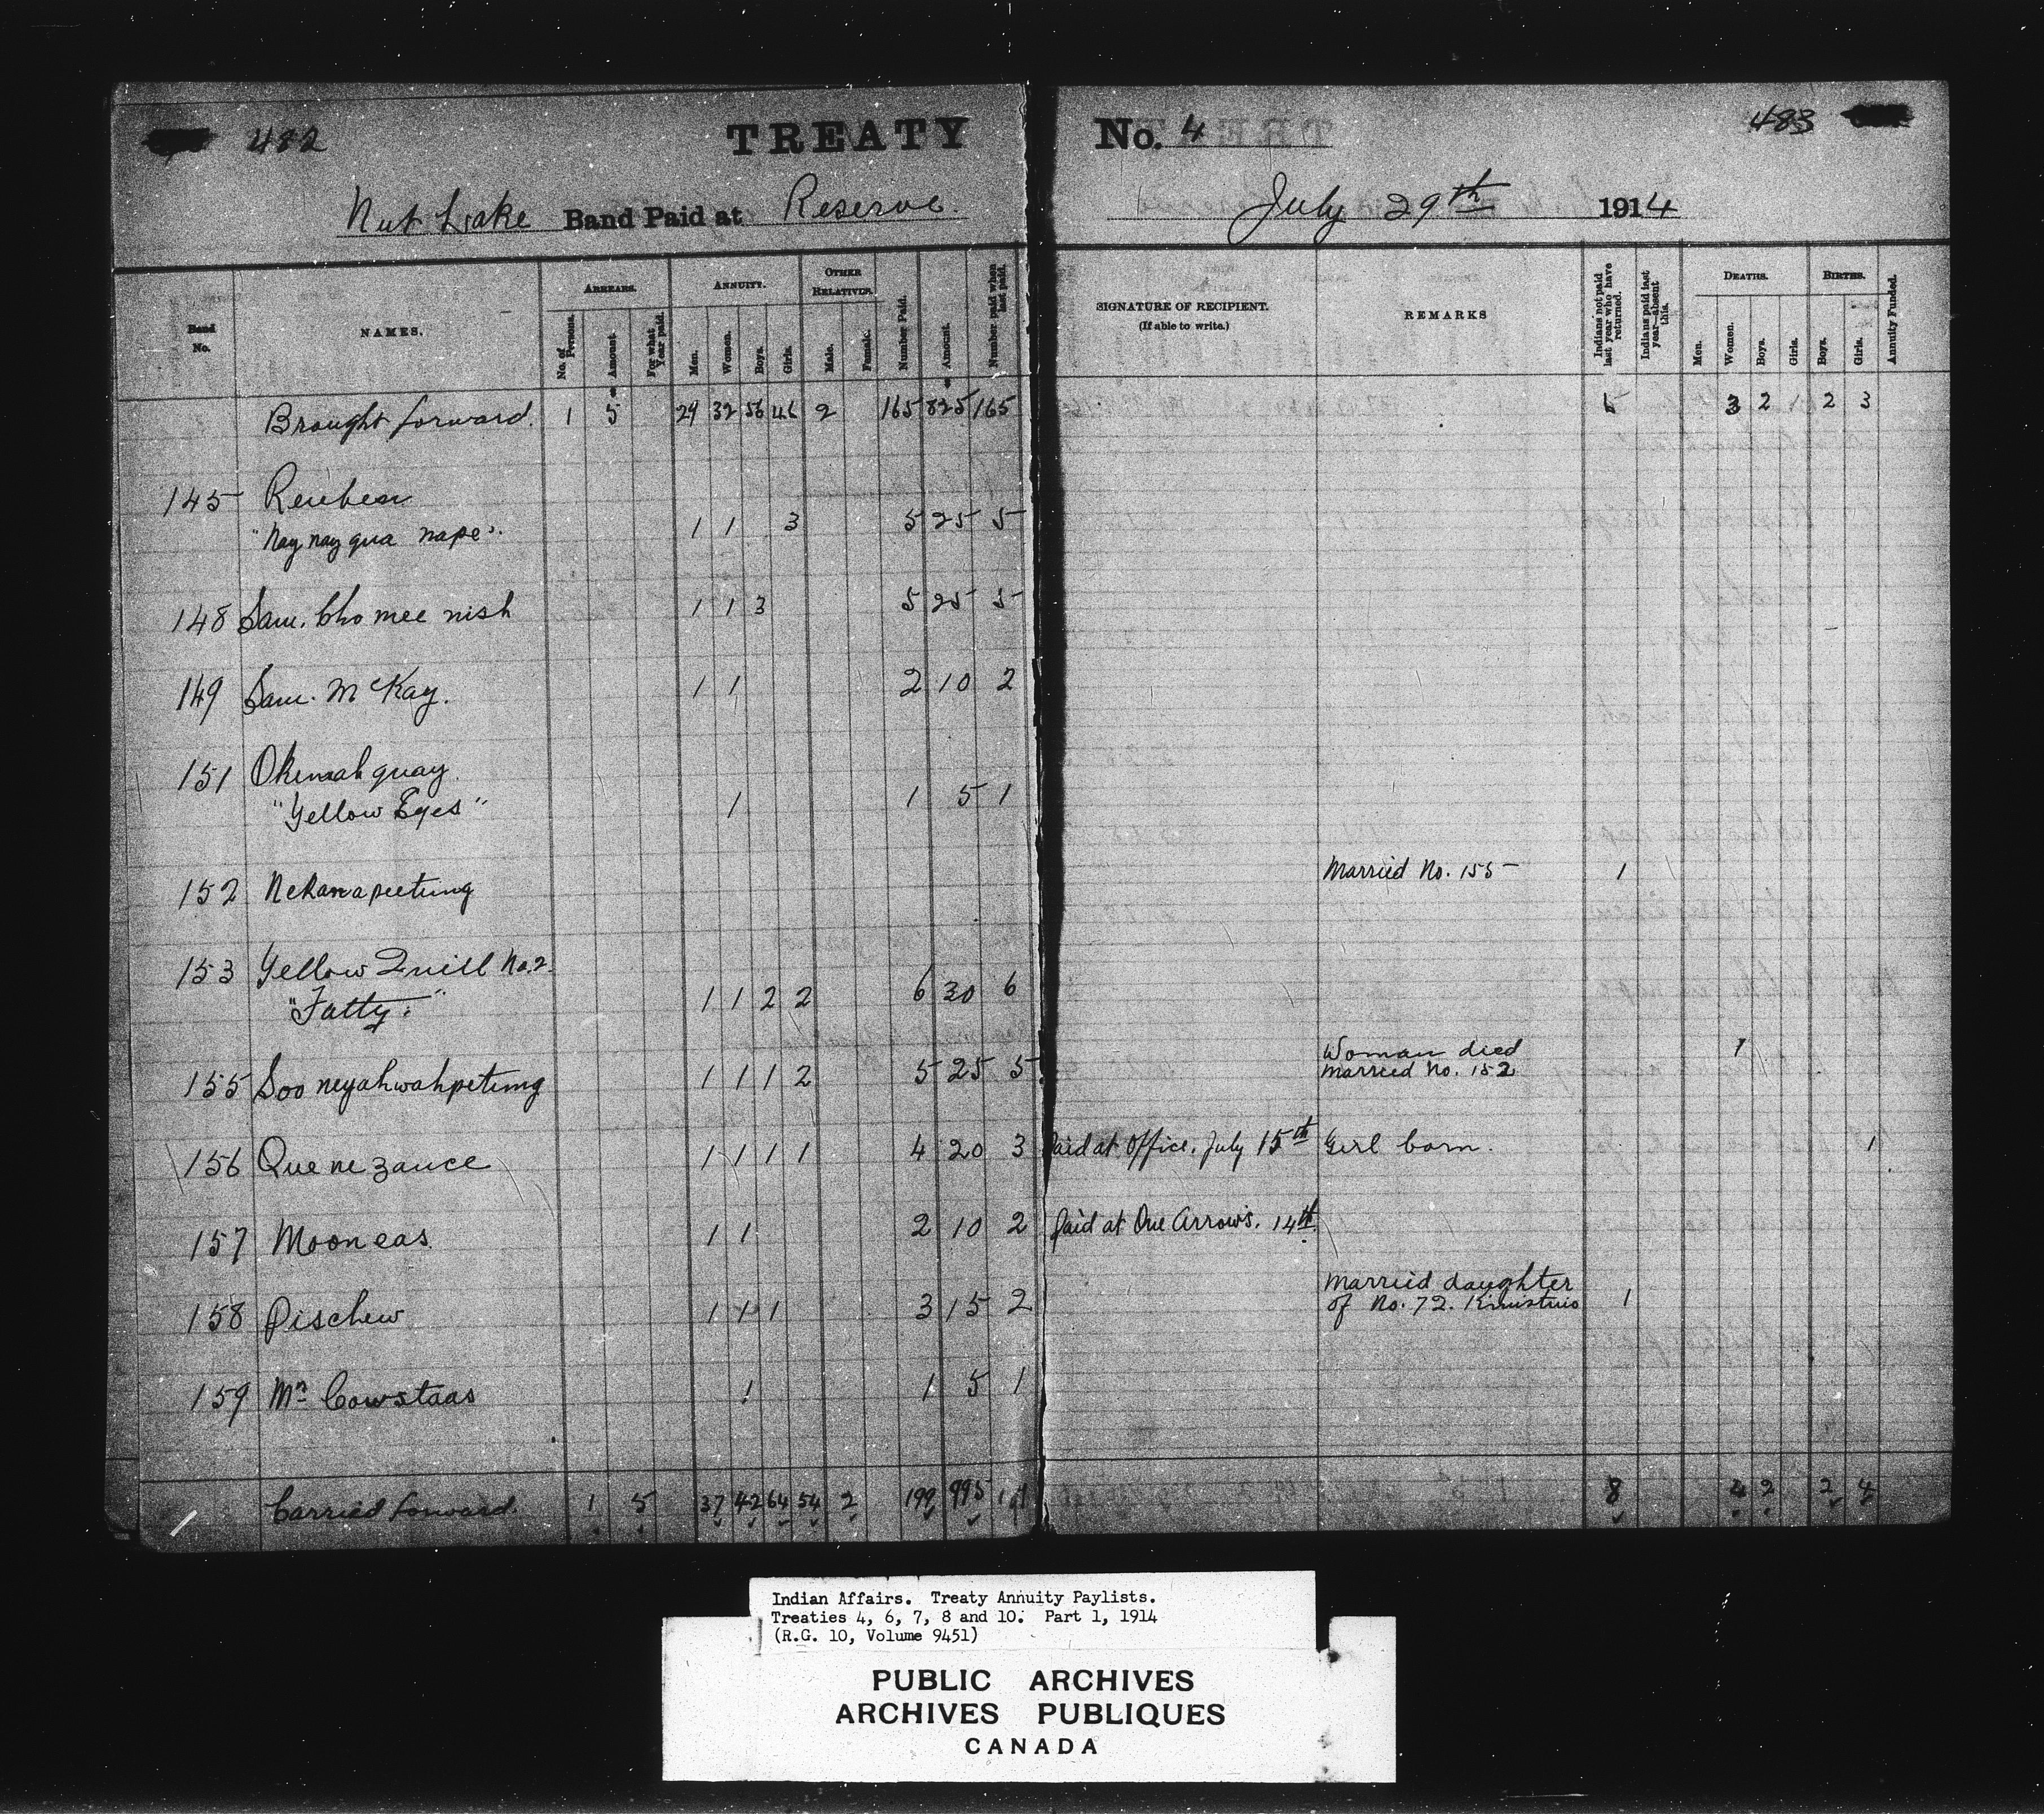 482
TREATY No. 4
483
Nut Lake Band Paid at Reserve. July 29th 1914
Band No.
NAMES.
ARREARS.
No. of Persons.
Amount.
For what Year paid.
ANNUITY.
Men.
Women.
Boys.
Girls.
OTHER RELATIVES.
Male.
Female.
Number Paid.
Amount.
Number paid when last paid.
SIGNATURE OF RECIPIENT.
(If able to write.)
REMARKS
Indians not paid last year who have returned.
Indians paid last year—absent this.
DEATHS.
Men.
Women.
Boys.
Girls.
BIRTHS.
Boys.
Girls.
Annuity Funded.
Brought forward. 1 5 29 32 56 46 2 165 825 165 3 2 2 3
145 Reuben
"Nay nay qua nape". 1 1 3 5 25 5
148 Sam. Cho mee nish 1 1 3 5 25 5
149 Sam. McKay. 1 1 2 10 2
151 Okemah quay.
"Yellow Eyes" 1 1 5 1
152 Nekanapeetung Married No. 155 1
153 Yellow Quill No. 2.
"Fatty." 1 1 2 2 6 30 6
155 Soo neyahwahpetung 1 1 1 2 5 25 5 Woman died 1
Married No. 152
156 Que ne zance 1 1 1 1 4 20 3 Paid at Office. July 15th Girl born. 1
157 Mooneas 1 1 2 10 2 Paid at One Arrow's. 14th
158 Pischew 1 1 1 3 15 2 Married daughter
of No. 72. Kinistino 1
159 Mrs Cowstaas 1 1 5 1
Carried forward. 1 5 37 42 64 54 2 199 995 8 4 2 2 4
Indian Affairs. Treaty Annuity Paylists.
Treaties 4, 6, 7, 8 and 10. Part 1, 1914
(R.G. 10, Volume 9451)
PUBLIC ARCHIVES
ARCHIVES PUBLIQUES
CANADA